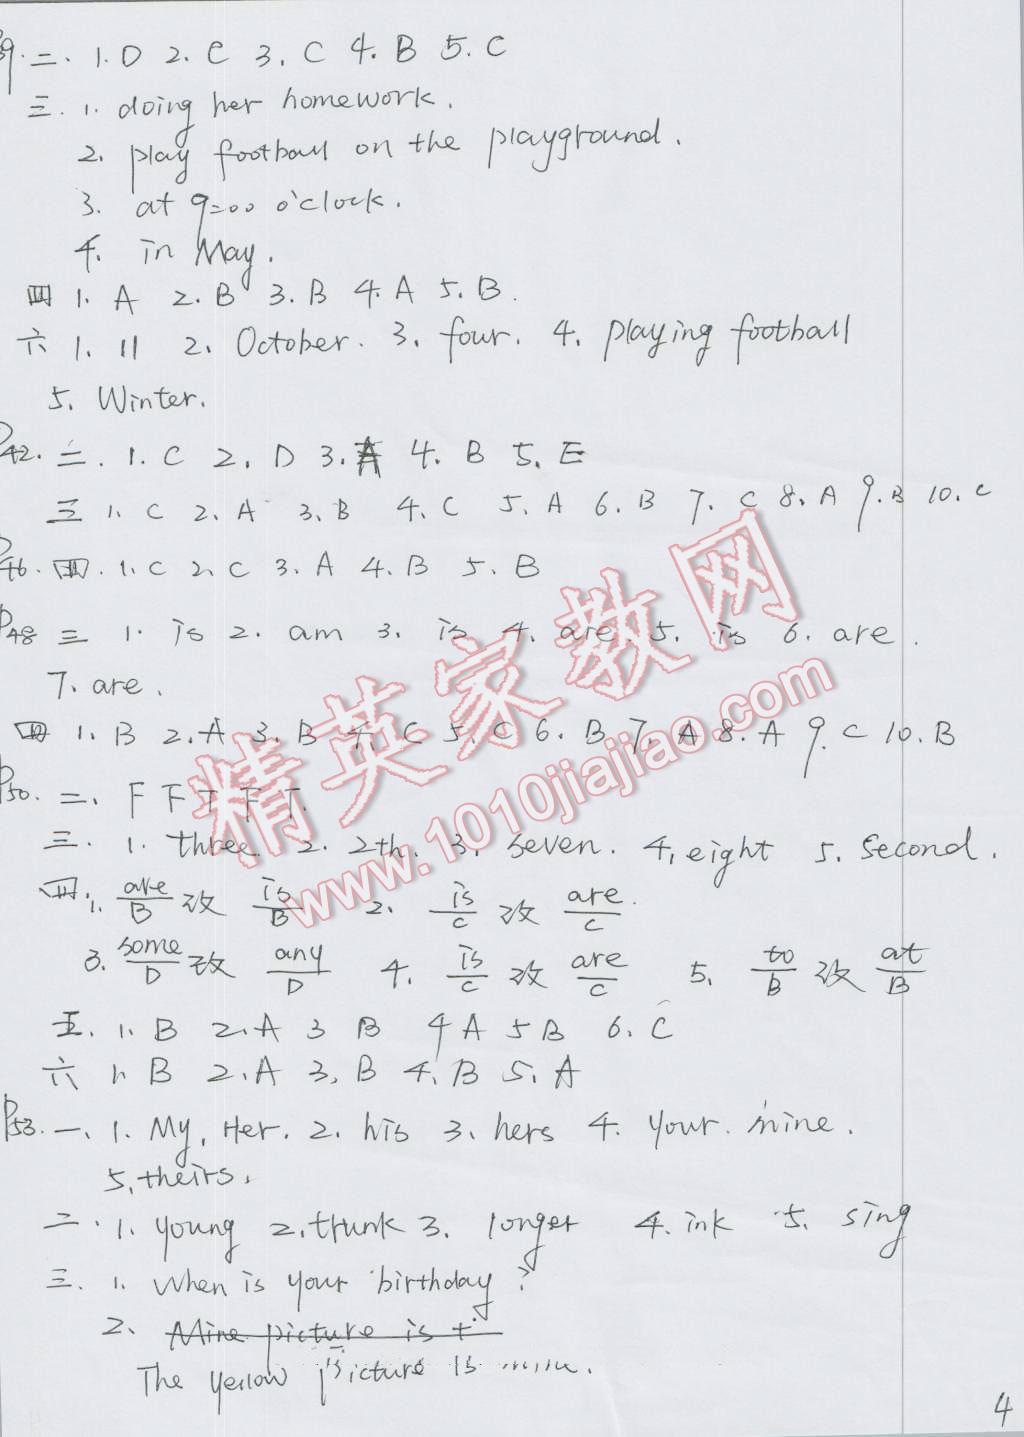 P39. 二. 1. D 2. C 3. C 4. B 5. C
三. 1. doing her homework.
2. play football on the playground.
3. at 9:00 o'clock.
4. in May.
四 1. A 2. B 3. B 4. A 5. B.
六 1. 11 2. October. 3. four. 4. playing football
5. Winter.
P42. 二. 1. C 2. D 3. A 4. B 5. E
三 1. C 2. A 3. B 4. C 5. A 6. B 7. C 8. A 9. B 10. C
P46. 四. 1. C 2. C 3. A 4. B 5. B
P48 三 1. is 2. am 3. is 4. are 5. is 6. are.
7. are.
四 1. B 2. A 3. B 4. C 5. C 6. B 7. A 8. A 9. C 10. B
P50. 二. F F T F T.
三. 1. three 2. 2th. 3. seven. 4. eight 5. Second.
四. 1. are/B 改 is/B 2. is/C 改 are/C.
3. some/D 改 any/D 4. is/C 改 are/C 5. to/B 改 at/B
五. 1. B 2. A 3 B 4 A 5 B 6. C
六 1. B 2. A 3. B 4. B 5. A
P53. 一. 1. My, Her. 2. his 3. hers 4. your. mine.
5. theirs.
二. 1. young 2. trunk 3. longer 4. ink 5. sing
三. 1. When is your birthday?
2. Mine picture is t
The yellow picture is mine.
4
精英家教网
www.1010jiajiao.com